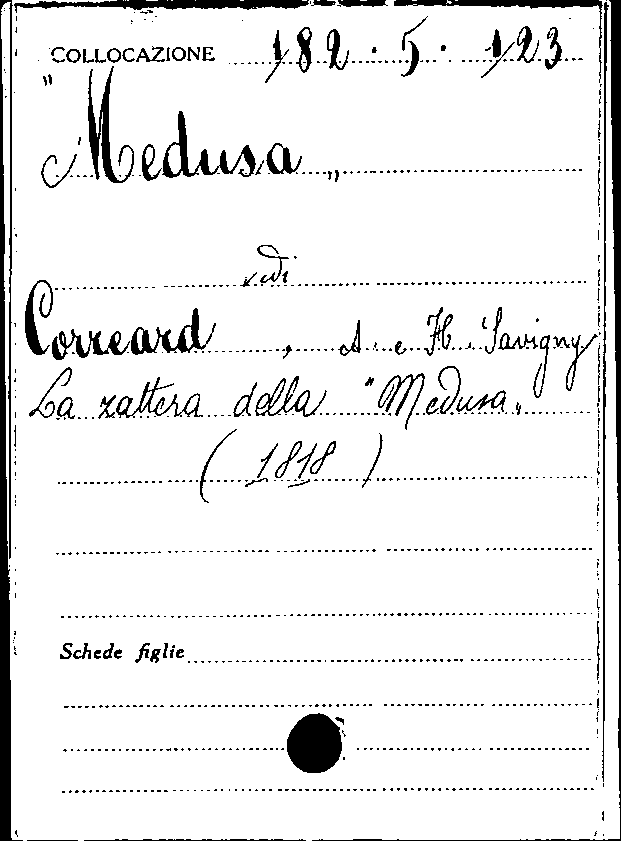 COLLOCAZIONE 182.5.123
"Medusa„
vedi
Correard, A. e H. Savigny
La zattera della "Medusa„
(1818)
Schede figlie